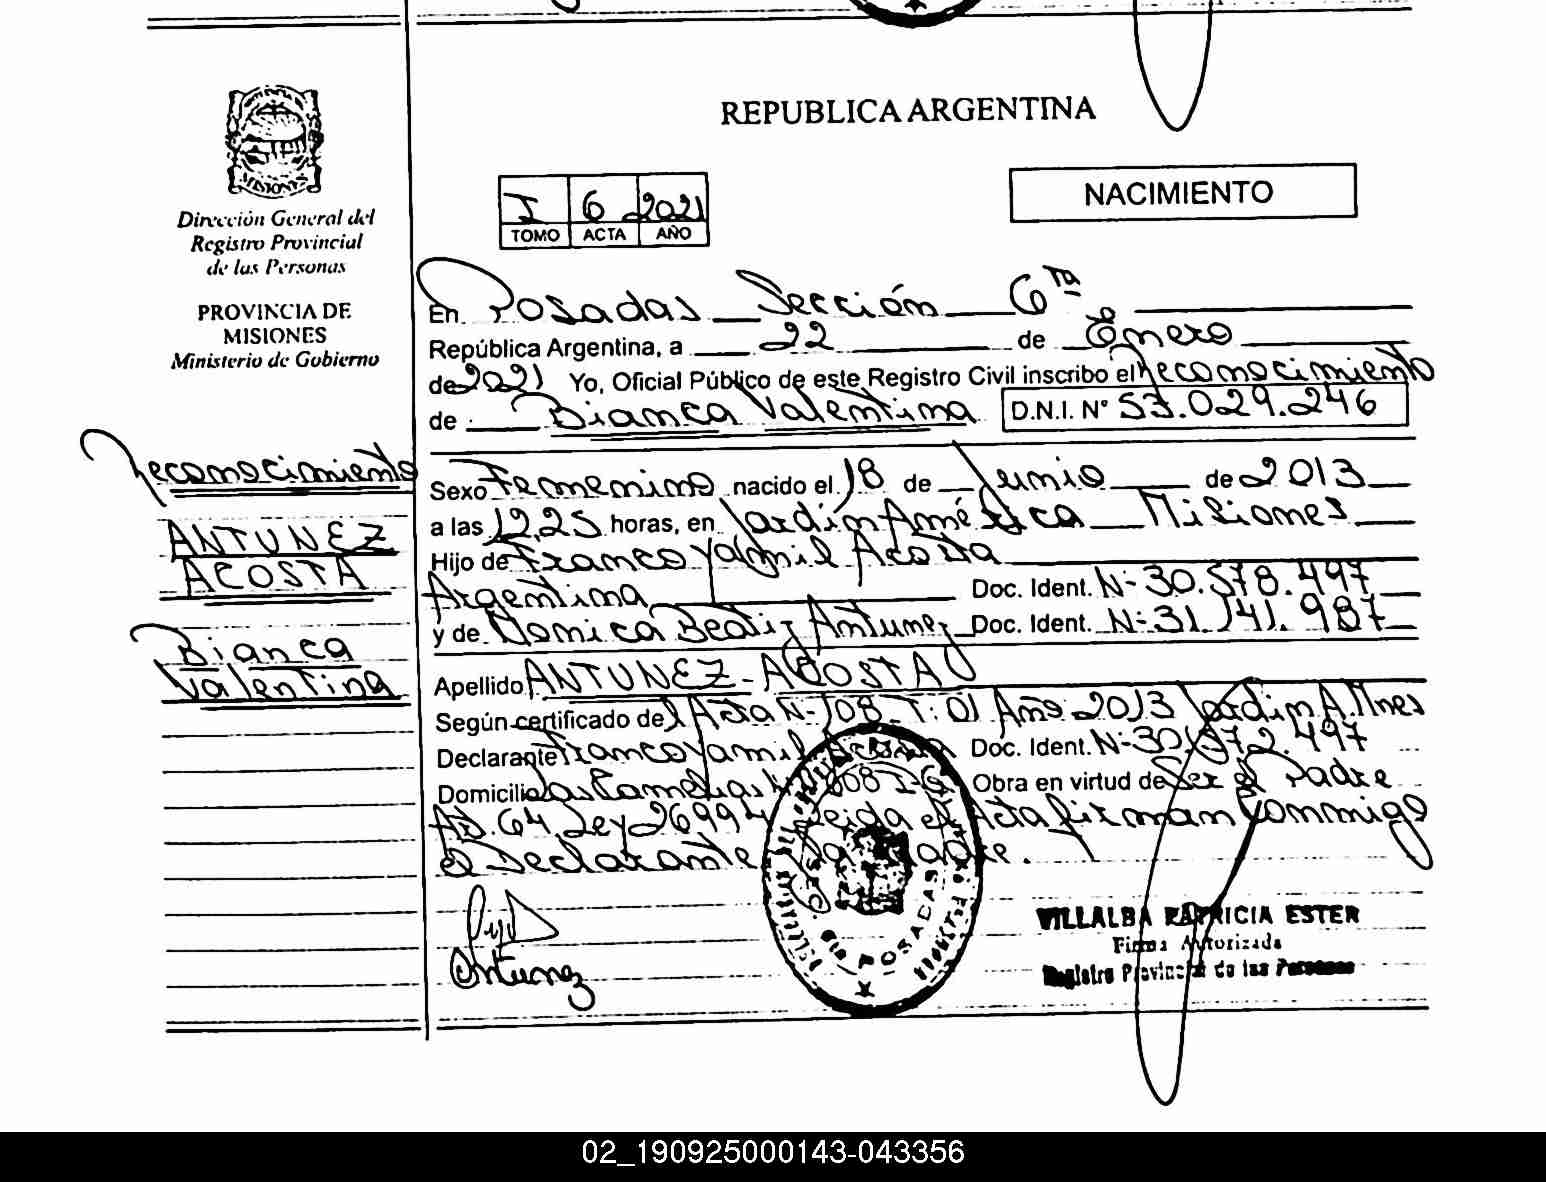 REPUBLICA ARGENTINA
NACIMIENTO
I 6 2021
TOMO ACTA AÑO
Dirección General del
Registro Provincial
de las Personas
PROVINCIA DE
MISIONES
Ministerio de Gobierno
Reconocimiento
ANTUNEZ
ACOSTA
Bianca
Valentina
En Posadas Sección 6ta
República Argentina, a 22 de Enero
de 2021 Yo, Oficial Público de este Registro Civil inscribo el Reconocimiento
de Bianca Valentina D.N.I. N° 53.029.246
Sexo Femenino nacido el 18 de Junio de 2013
a las 12,25 horas, en Jardín América Misiones
Hijo de Franco Yamil Acosta
Argentina Doc. Ident. N- 30.578.497
y de Monica Beatriz Antunez Doc. Ident. N- 31.141.987
Apellido ANTUNEZ - ACOSTA
Según certificado de Acta N- 108 T: 01 Año 2013 Jardin A. Mnes
Declarante Franco Yamil Acosta Doc. Ident. N- 30.572.497
Domicilio Las Camelias 608 I-G Obra en virtud de Ser el Padre
Art. 64, Ley 26994 Leida el Acta firman Conmigo
el Declarante la Madre.
Antunez
POSADAS
VILLALBA PATRICIA ESTER
Firma Autorizada
Registro Provincial de las Personas
02_190925000143-043356